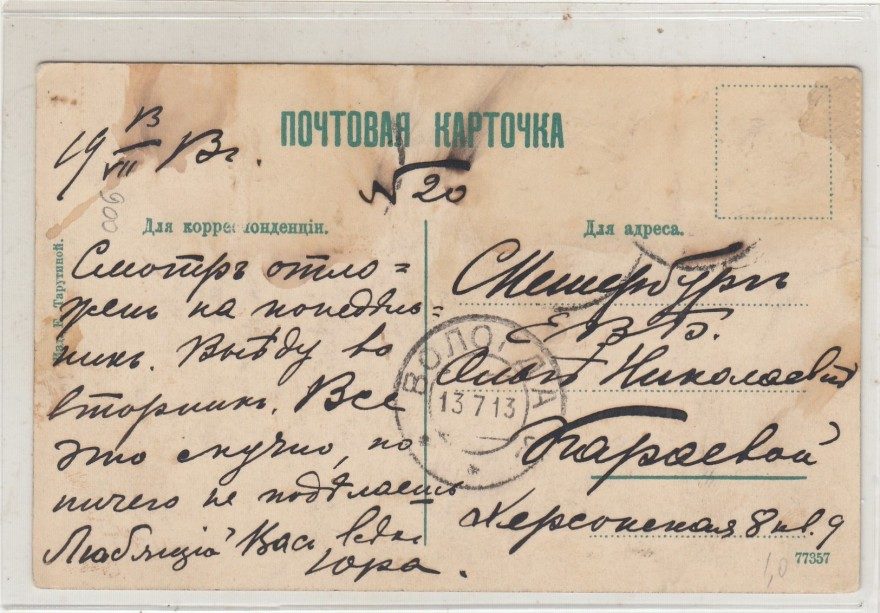 ПОЧТОВАЯ КАРТОЧКА
19 13/VII 13г.
№ 20
900
Для корреспонденціи.
Смотръ отло=
женъ на понедѣль=
никъ. Выѣду во
вторникъ. Все
это скучно, но
ничего не подѣлаешь
Любящій Васъ
Юра.
Изд. Е. Тарутиной.
ВОЛОГДА
13 7 13
Для адреса.
С.Петербургъ
Е. В. Б.
Ольгѣ Николаевнѣ
Караевой
Херсонская 8 кв. 9
77357
1,0